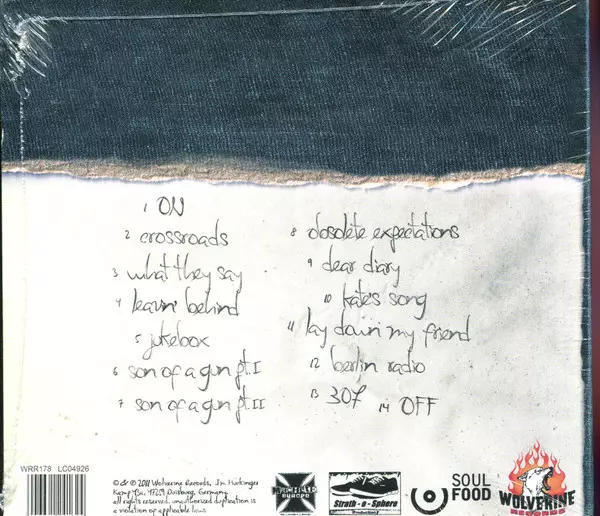 1 ON
2 crossroads
3 what they say
4 leavin' behind
5 jukebox
6 son of a gun pt. I
7 son of a gun pt. II
8 obsolete expectations
9 dear diary
10 kate's song
11 lay down my friend
12 berlin radio
13 307
14 OFF
WRR178 LC04926
2011 Wolverine Records, Im
47259 Duisburg, Germany
all rights reserved. unauthorized duplication is
a violation of applicable laws
europe
Strath-o-Sphere
Productions
SOUL
FOOD
WOLVERINE
RECORDS